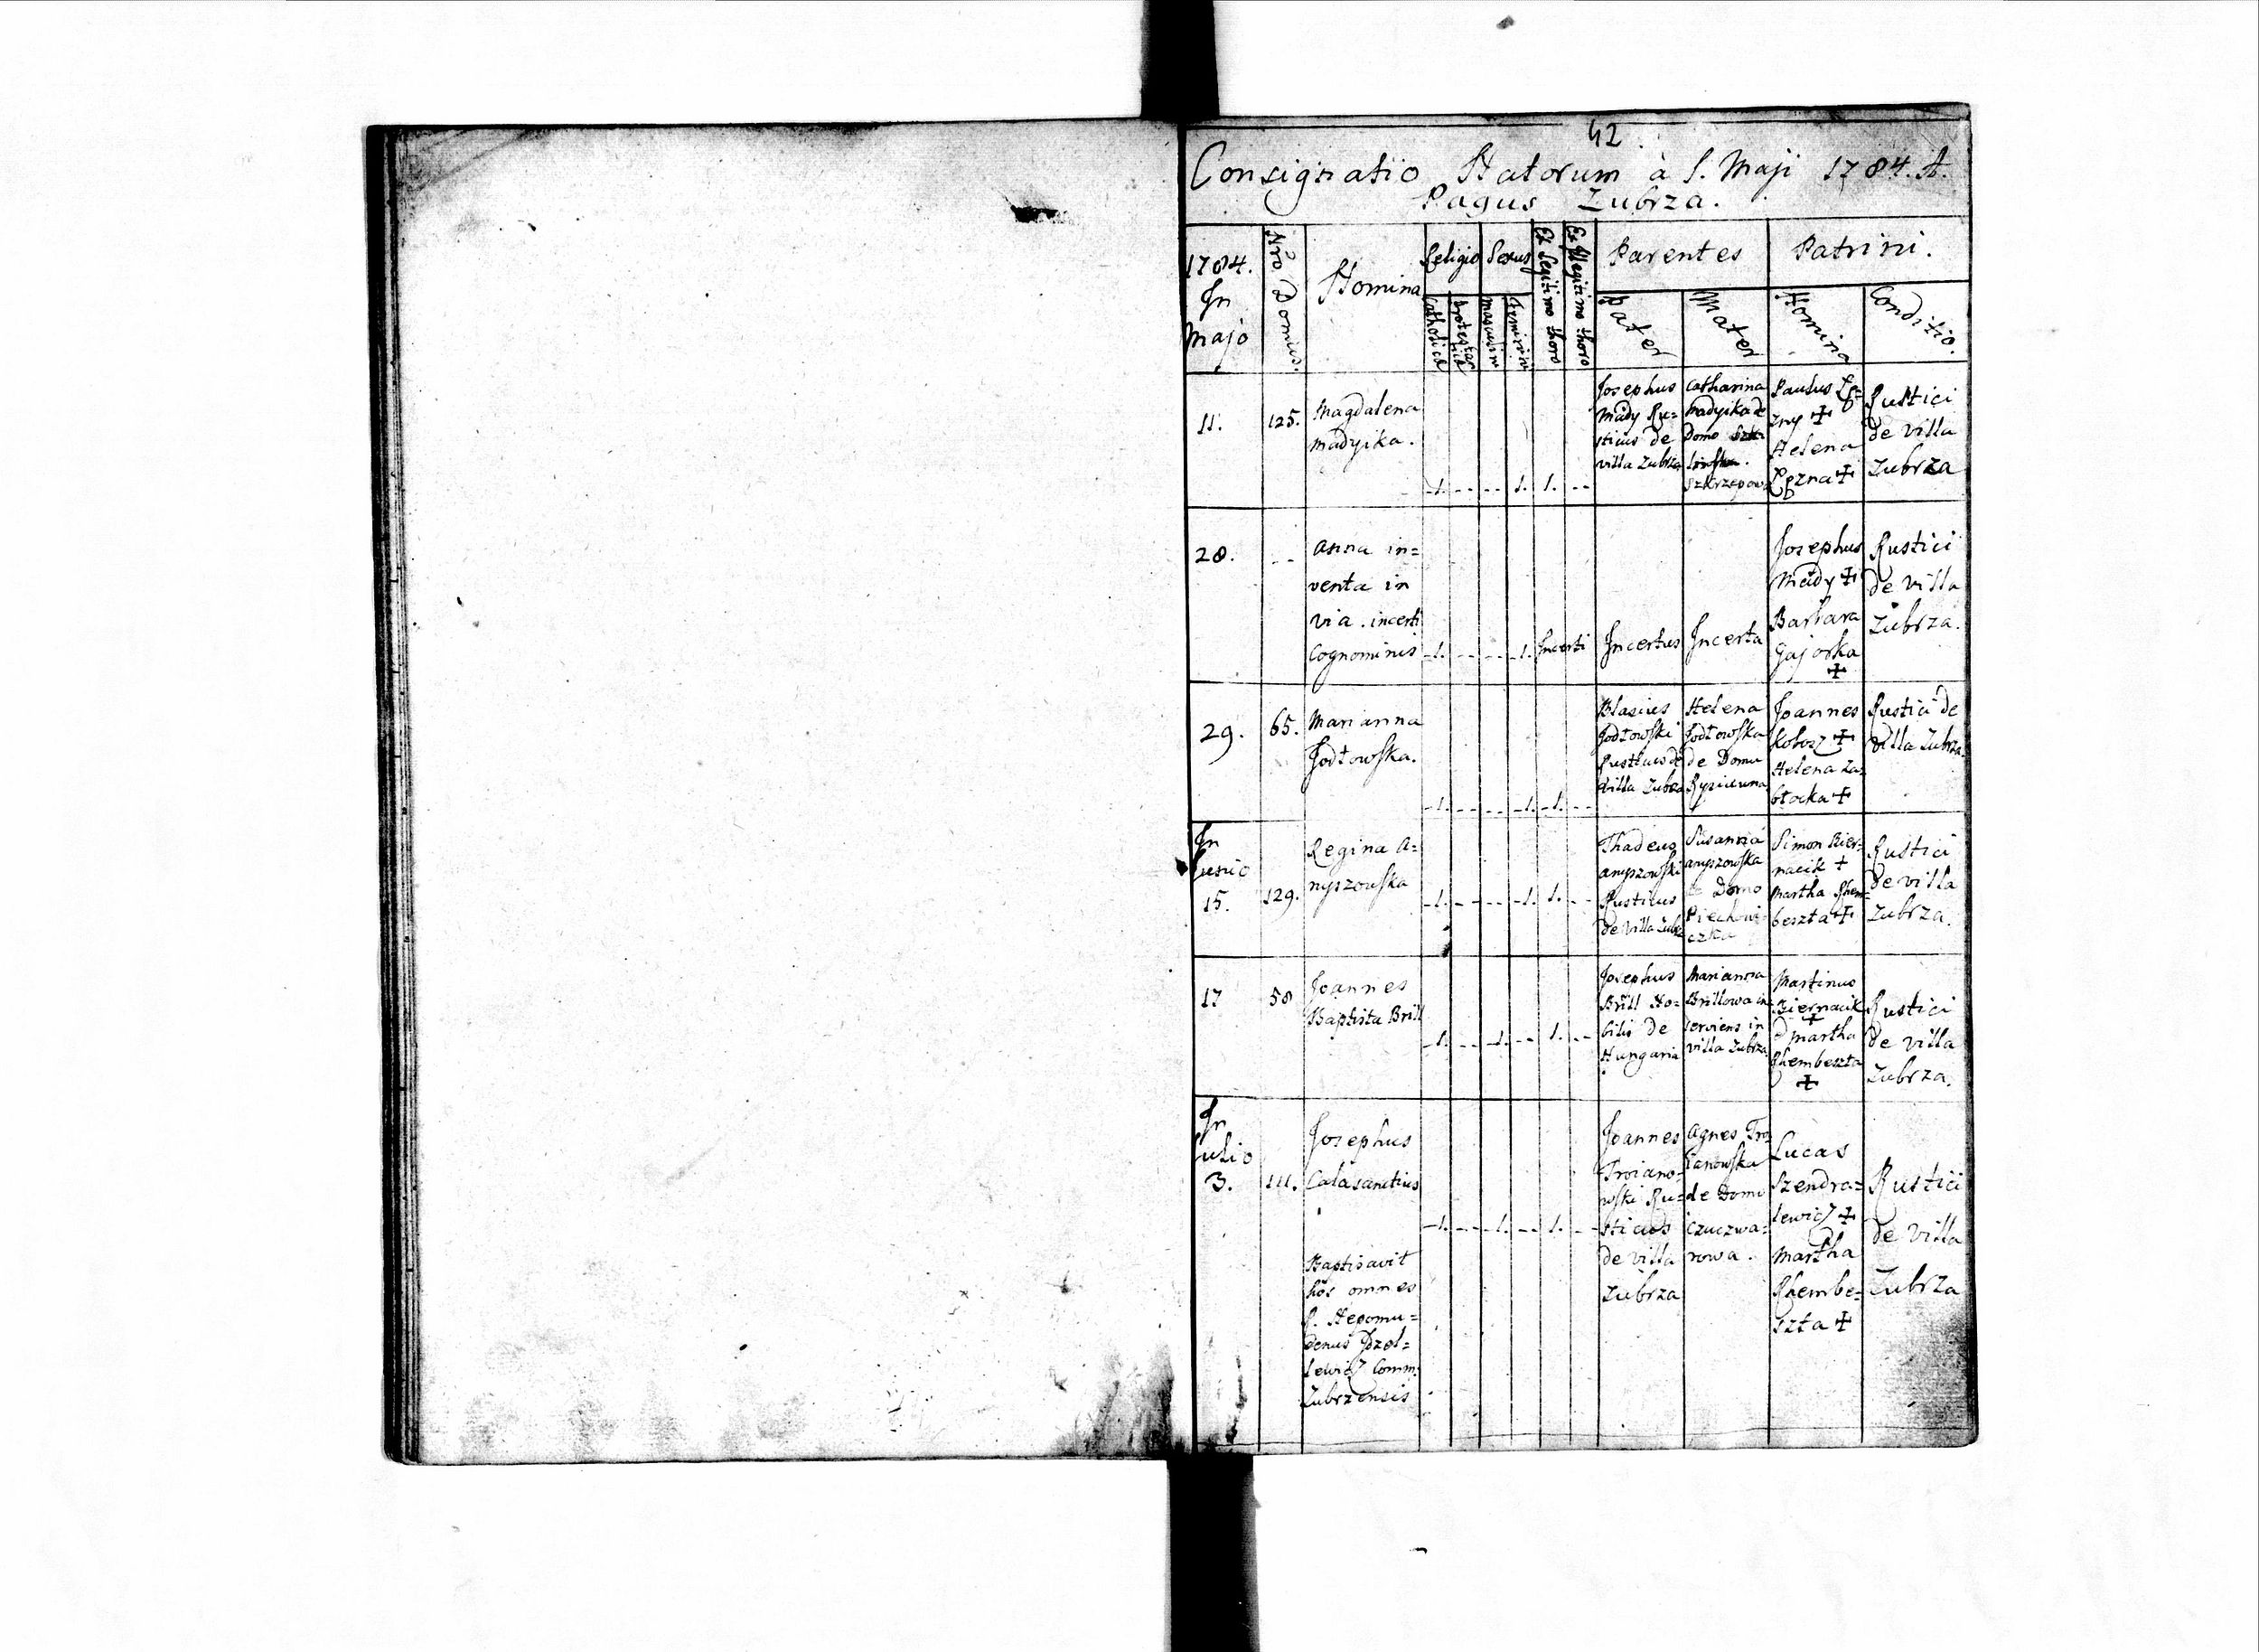 42.
Consignatio Natorum à 1. Maji 1784. A.
Pagus Zubrza.
1784.
In
Majo
Nrõ Domus.
Nomina
Religio
Catholica
Sexus
Masculini
Feminini
Ex Legitimo thoro
Ex Illegitimo thoro
Parentes
Pater
Mater
Patrini.
Nomina
Conditio.
11.
125.
Magdalena
Madyika.
1.
1.
1.
Josephus
Mady Ru=
sticus de
villa Zubrza
Catharina
Madyika de
Domo
Szkrzepowa
Paulus
zny +
Helena
+
Rustici
de villa
Zubrza
28.
Anna in=
venta in
via. incerti
Cognominis
1.
1.
Incerti
Incertus
Incerta
Josephus
Mady +
Barbara
Gajorka
+
Rustici
de villa
Zubrza.
29.
65.
Marianna
Jodłowska.
1.
1.
1.
Blasius
Jodłowski
Rusticus de
villa Zubrza
Helena
Jodłowska
de Domu
Joannes
Kolosz +
Helena Za=
błocka +
Rustici de
villa Zubrza.
In
Junio
15.
129.
Regina A=
nyszowska
1.
1.
1.
Thadeus
Anyszowski
Rusticus
de villa Zubrz
Susanna
Anyszowska
Domo
Piechowi
czka
Simon Bier=
nacik +
Martha Rhem=
beszta +
Rustici
de villa
Zubrza.
17
58
Joannes
Baptista Brill
1.
1.
1.
Josephus
Brill No=
bilis de
Hungaria
Marianna
Brillowa in=
serviens in
villa Zubrza
Martinus
Biernacik
+
Martha
Rhembeszta
+
Rustici
de villa
Zubrza.
In
Julio
3.
111.
Josephus
Calasanctius
1.
1.
1.
Joannes
Troiano=
wski Ru=
sticus
de villa
Zubrza
Agnes Tro
ianowska
de Domo
Czuczwa=
rowa.
Lucas
Szendra=
lewicz +
Martha
Rhembe=
szta +
Rustici
de villa
Zubrza
Baptisavit
hos omnes
P. Nepomu=
cenus
lewicz Comm:
Zubrzensis